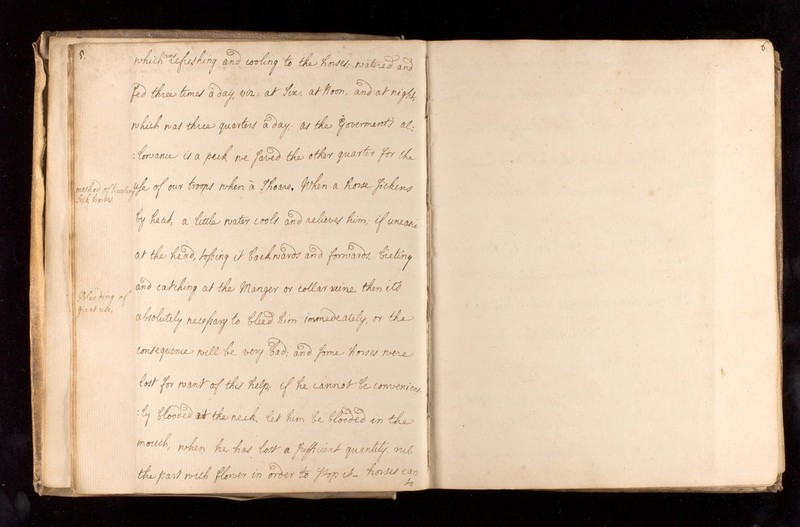 5.
which was refreshing and cooling to the horses. watered and
fed three times a day, viz: at Six: at Noon, and at night,
which was three quarters a day. as the Goverments al:
:lowance is a peck we saved the other quarter for the
method of treating
sick horses
use of our troops when a Shoare. When a horse sickens
by heat, a little water cools and relieves him; if uneasie
at the head, tossing it backwards and forwards bieting
and catching at the Manger or collar reine then its
Bleeding of
great use.
absolutely necessary to bleed him immedeately, or the
consequence will be very bad; and some horses were
lost for want of this help; if he cannot be convenient
:ly blooded at the neck, let him be blooded in the
mouth, when he has lost a sufficient quantity, rub
the part with flower in order to stop it_ horses eac
to
6